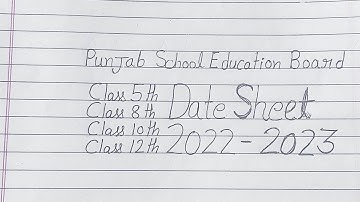 Punjab School Education Board
Class 5th
Class 8th
Class 10th
Class 12th
Date Sheet
2022-2023